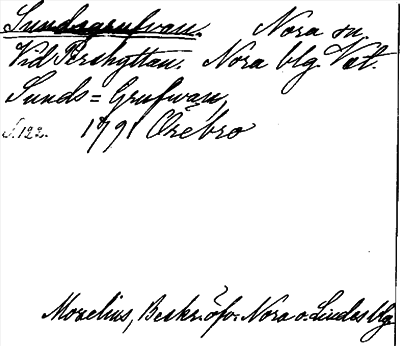 Sundsgrufvan. Nora sn.
Vid Pershyttan. Nora blg. Väst.
Sunds=Grufwan,
S.122. 1791 Örebro
Morelius, Beskr. öfv. Nora o. Lindes blg